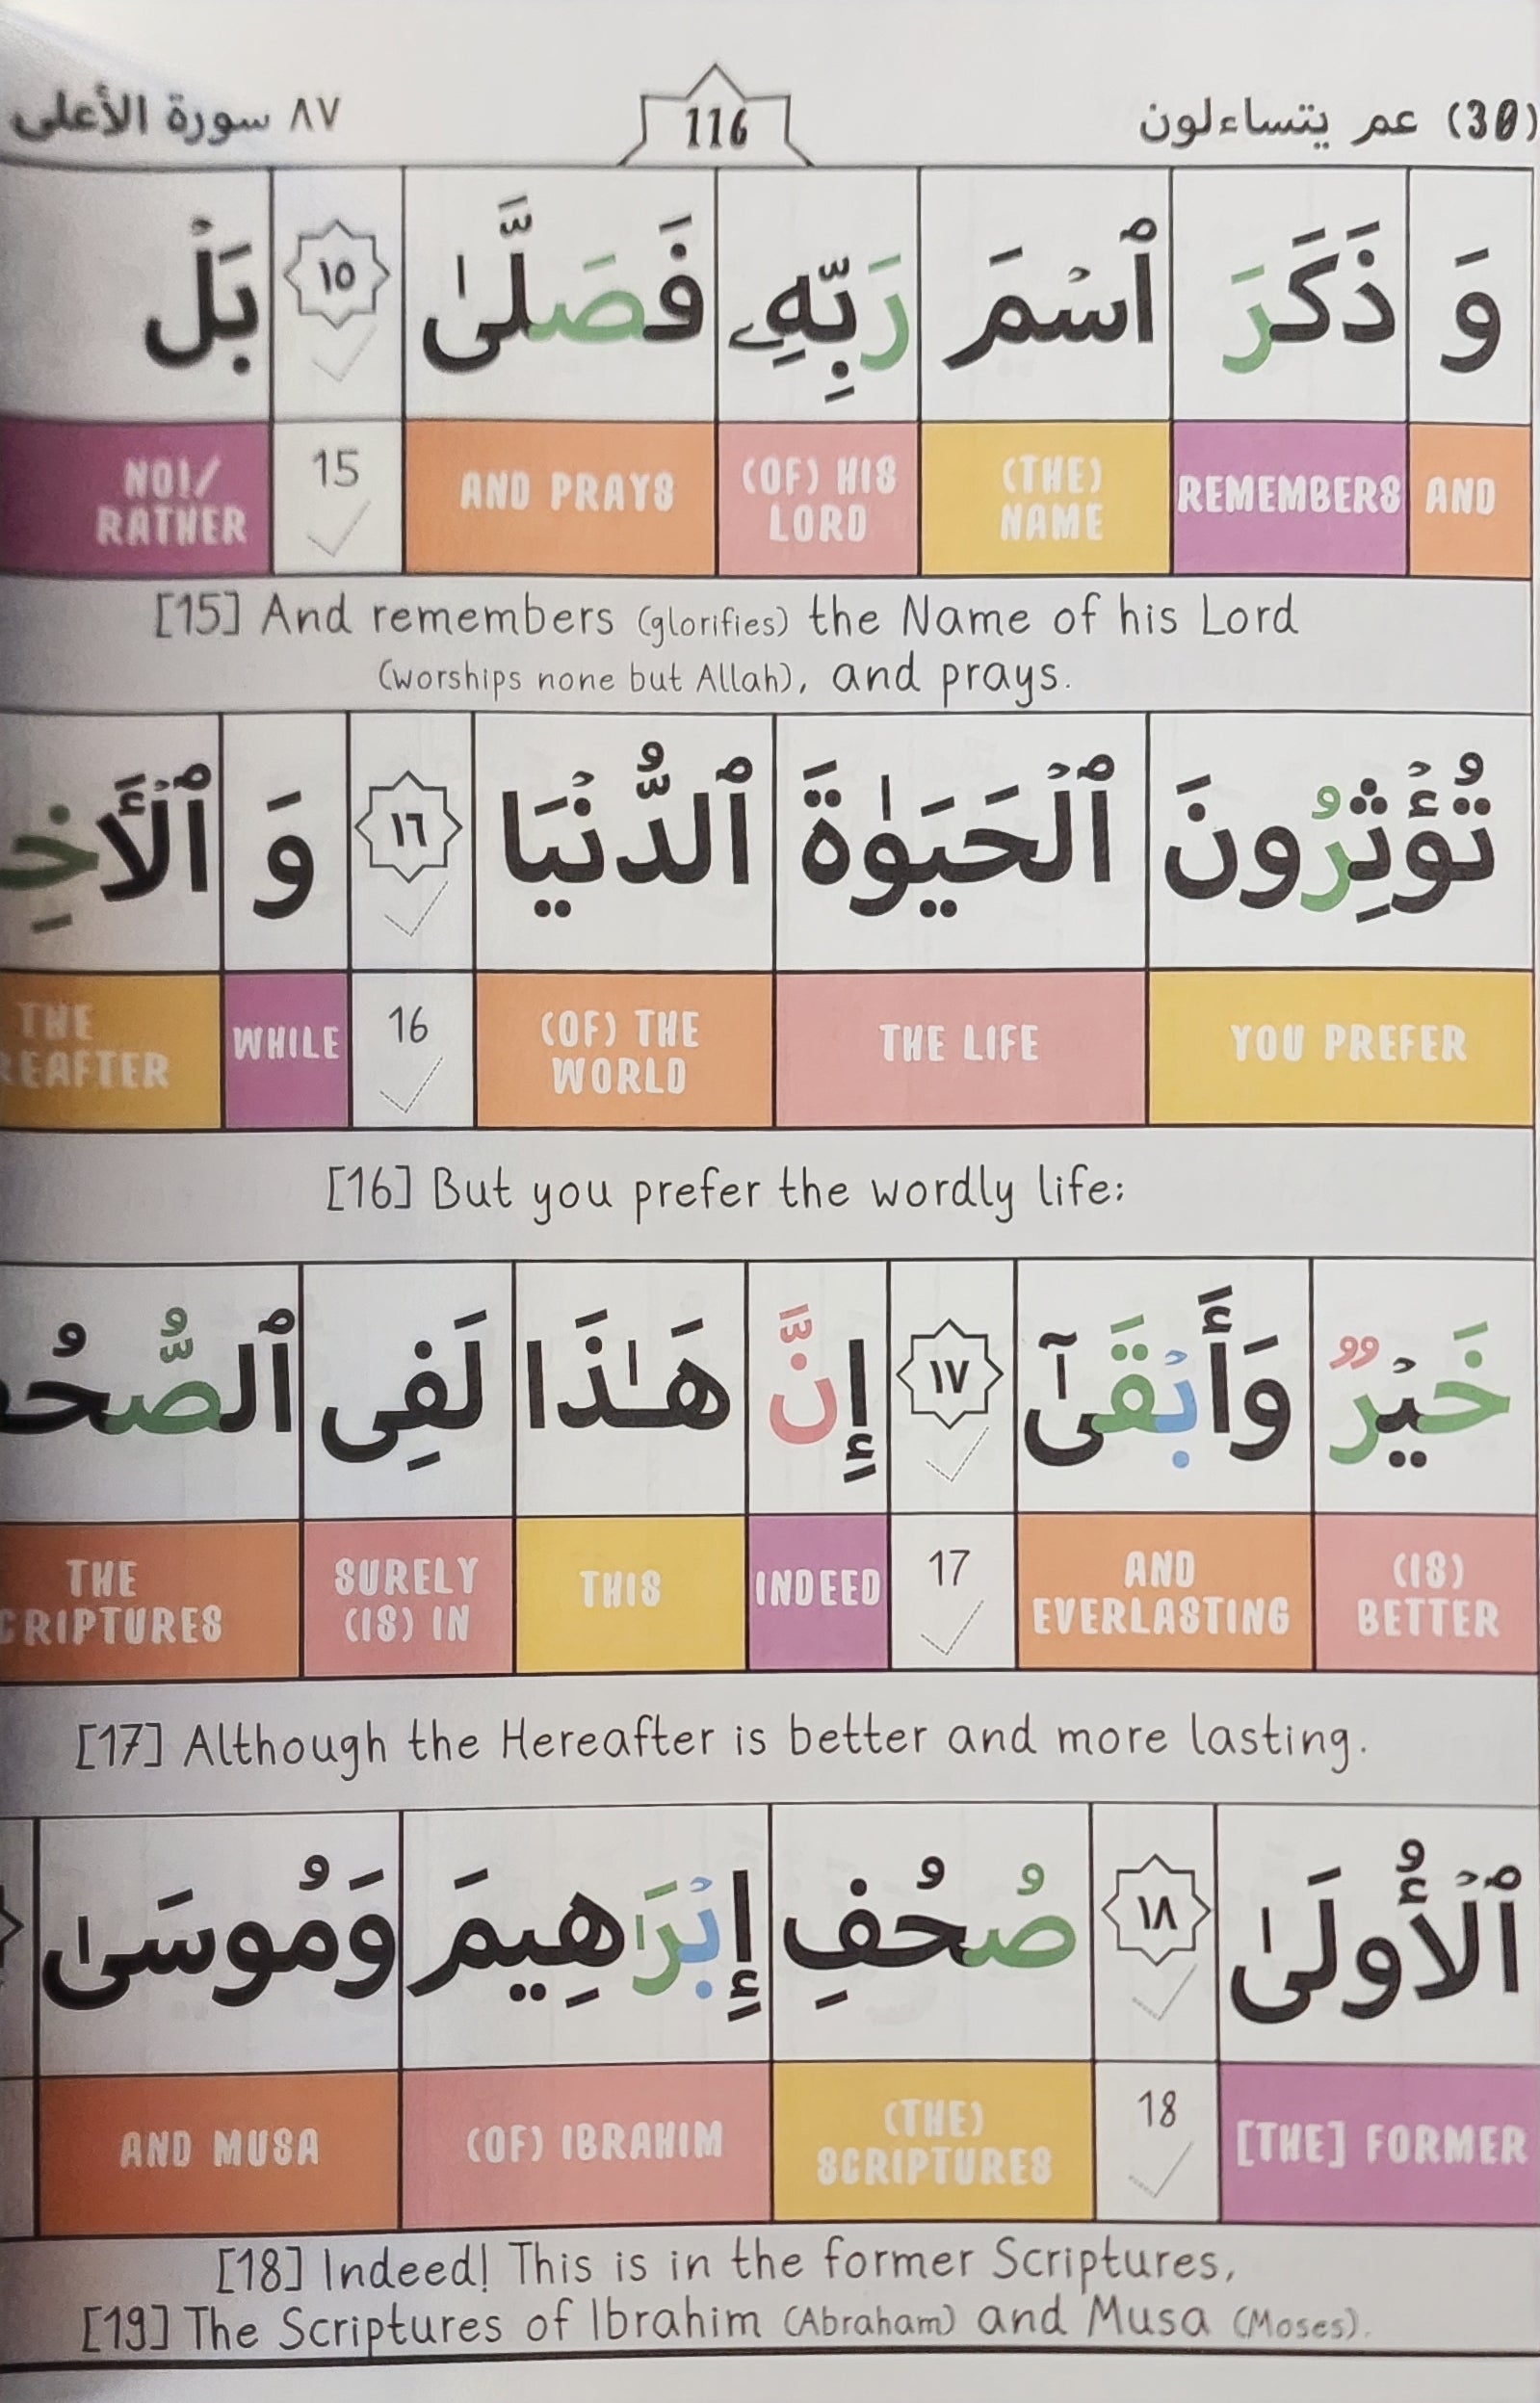 (30) عم يتساءلون 116 ٨٧ سورة الأعلى
وَ ذَكَرَ ٱسْمَ رَبِّهِۦ فَصَلَّىٰ ١٥ بَلْ
AND REMEMBERS (THE) NAME (OF) HIS LORD AND PRAYS 15 NO!/ RATHER
[15] And remembers (glorifies) the Name of his Lord
(worships none but Allah), and prays.
تُؤْثِرُونَ ٱلْحَيَوٰةَ ٱلدُّنْيَا ١٦ وَ
YOU PREFER THE LIFE (OF) THE WORLD 16 WHILE THE
[16] But you prefer the wordly life:
خَيْرٌ وَأَبْقَىٰٓ ١٧ إِنَّ هَـٰذَا لَفِى
(IS) BETTER AND EVERLASTING 17 INDEED THIS SURELY (IS) IN THE
[17] Although the Hereafter is better and more lasting.
ٱلْأُولَىٰ ١٨ صُحُفِ إِبْرَٰهِيمَ وَمُوسَىٰ
[THE] FORMER 18 (THE) SCRIPTURES (OF) IBRAHIM AND MUSA
[18] Indeed! This is in the former Scriptures,
[19] The Scriptures of Ibrahim (Abraham) and Musa (Moses).